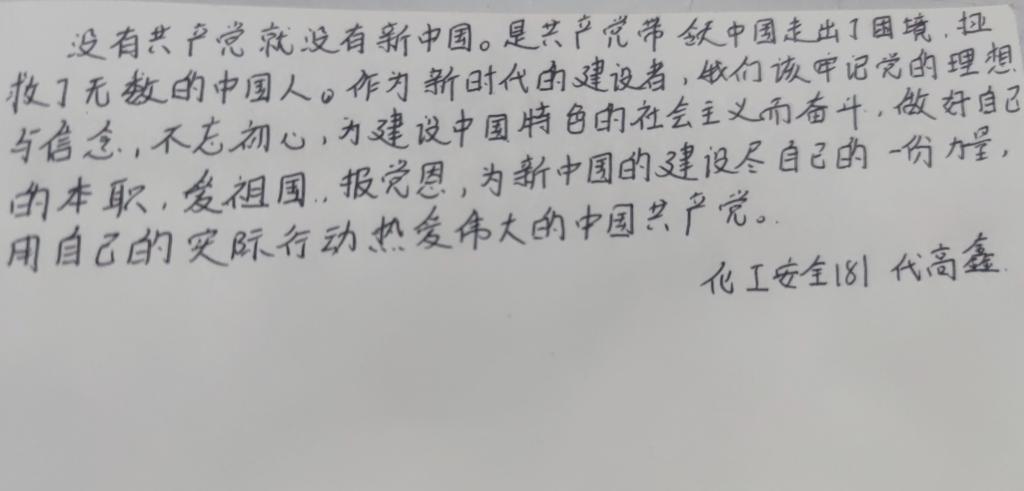 没有共产党就没有新中国。是共产党带领中国走出了困境,拯
救了无数的中国人。作为新时代的建设者,我们该牢记党的理想
与信念,不忘初心,为建设中国特色的社会主义而奋斗,做好自己
的本职,爱祖国,报党恩,为新中国的建设尽自己的一份力量,
用自己的实际行动热爱伟大的中国共产党。
化工安全181 代高鑫